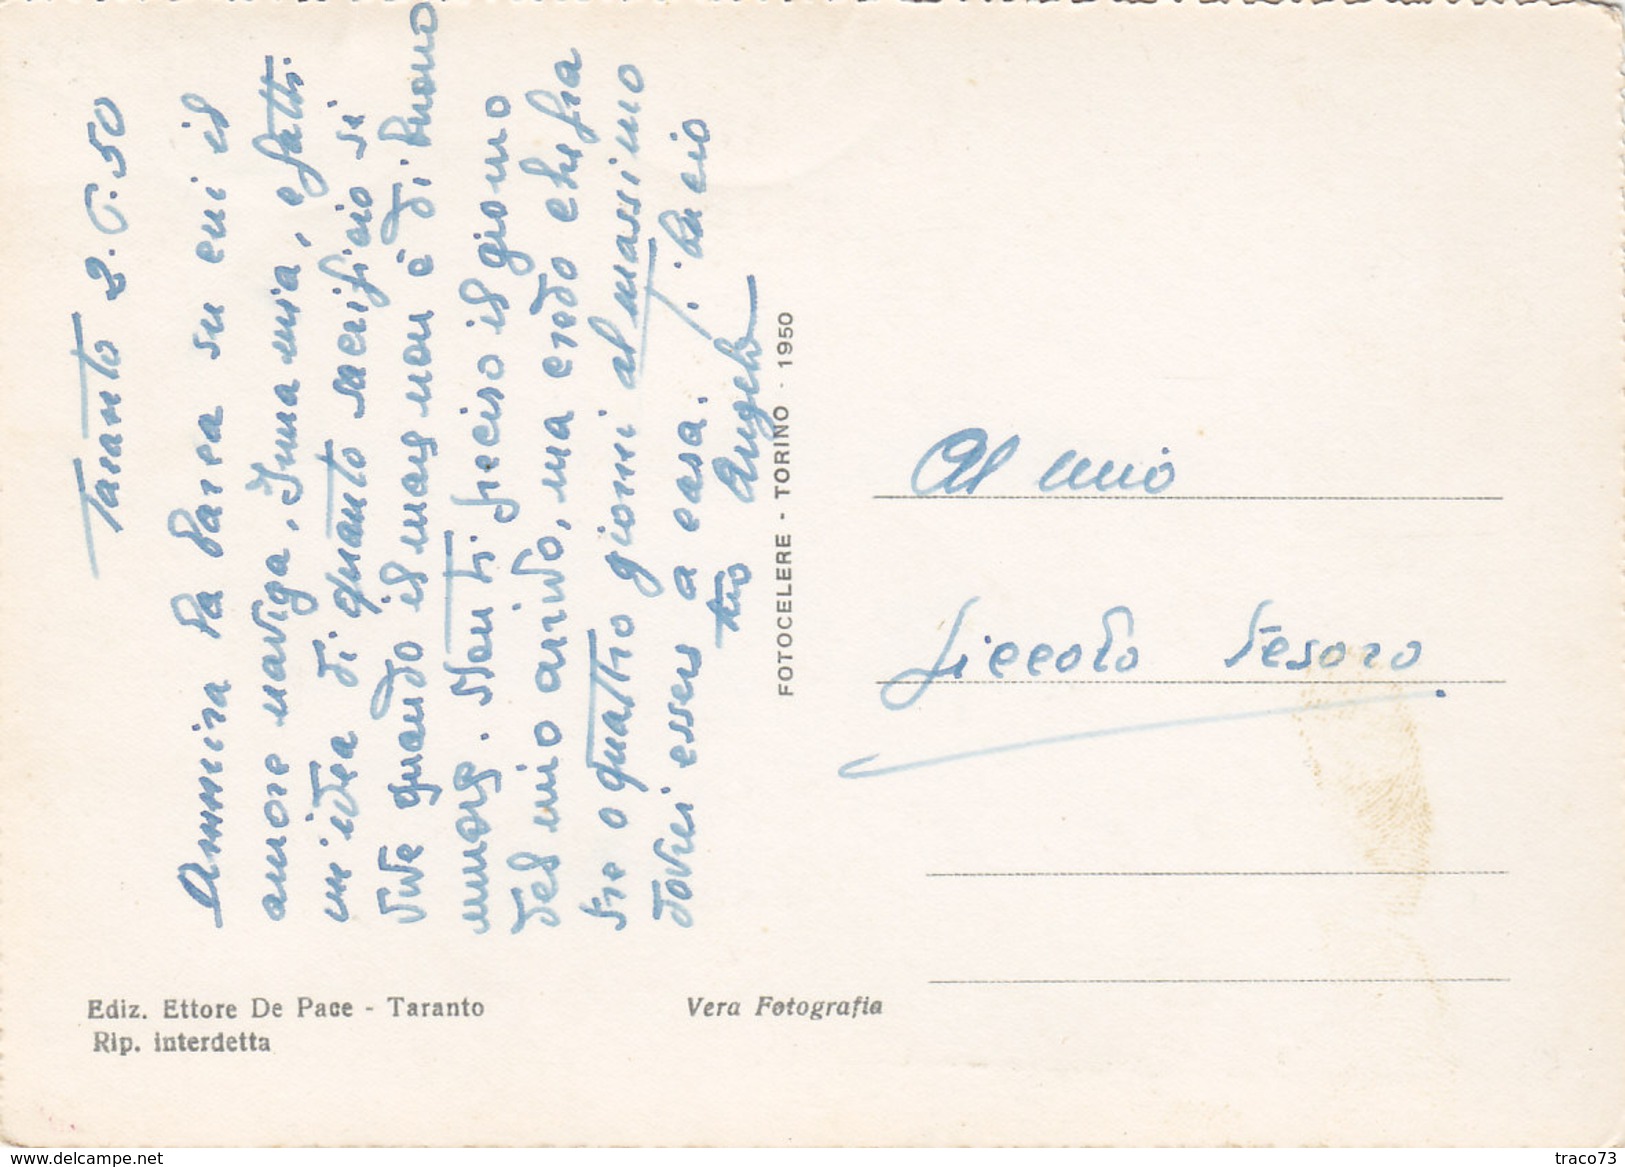 Taranto 2.6.50
Ammira la barca su cui il
amore naviga. Immagina, e fatti
un'idea di quanto sacrificio si
vive quando il mare non è di buono
umore. Non ti preciso il giorno
del mio arrivo, ma credo che fra
tre o quattro giorni al massimo
dovrei essere a casa. Bacio
tuo Angelo
FOTOCELERE - TORINO - 1950
Al mio
piccolo tesoro
Ediz. Ettore De Pace - Taranto
Rip. interdetta
Vera Fotografia
www.delcampe.net
traco73